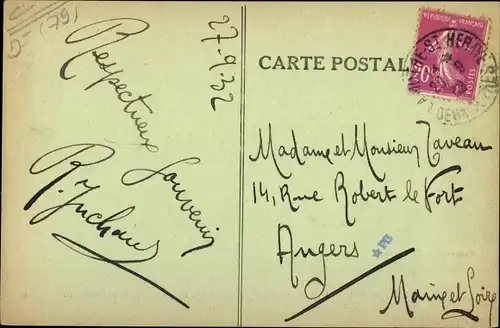 (79)
27-9-32
Respectueux
Souvenir
CARTE POSTALE
REPUBLIQUE FRANÇAISE
20c
POSTES
Madame et Monsieur Taveau
14, Rue Robert le Fort
Angers
Maine et Loire